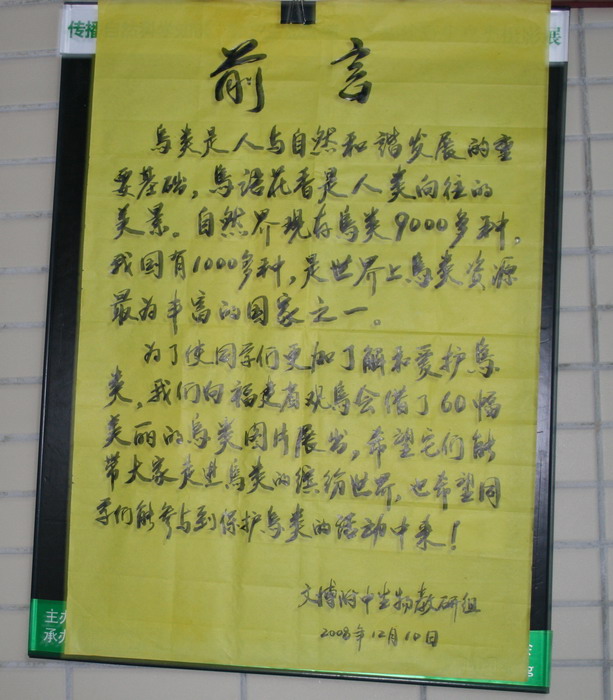 传播
展
前言
鸟类是人与自然和谐发展的重
要基础，鸟语花香是人类向往的
美景。自然界现存鸟类9000多种，
我国有1000多种，是世界上鸟类资源
最为丰富的国家之一。
为了使同学们更加了解和爱护鸟
类，我们向福建省观鸟会借了60幅
美丽的鸟类图片展出，希望它们能
带大家走进鸟类的缤纷世界，也希望同
学们能参与到保护鸟类的活动中来！
文博附中生物教研组
2008年12月10日
主办
承办